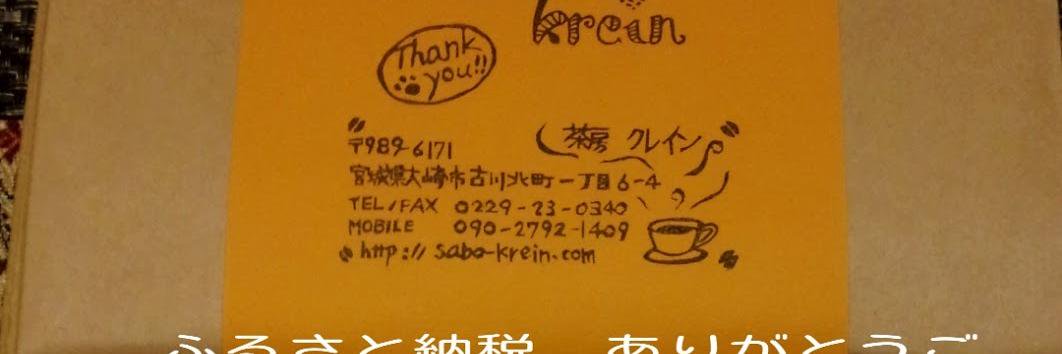 krein
Thank
you!!
茶房 クレイン
〒989-6171
宮城県大崎市古川北町一丁目6-4
TEL/FAX 0229-23-0340
MOBILE 090-2792-1409
http://sabo-krein.com
ふるさと納税 ありがとうご